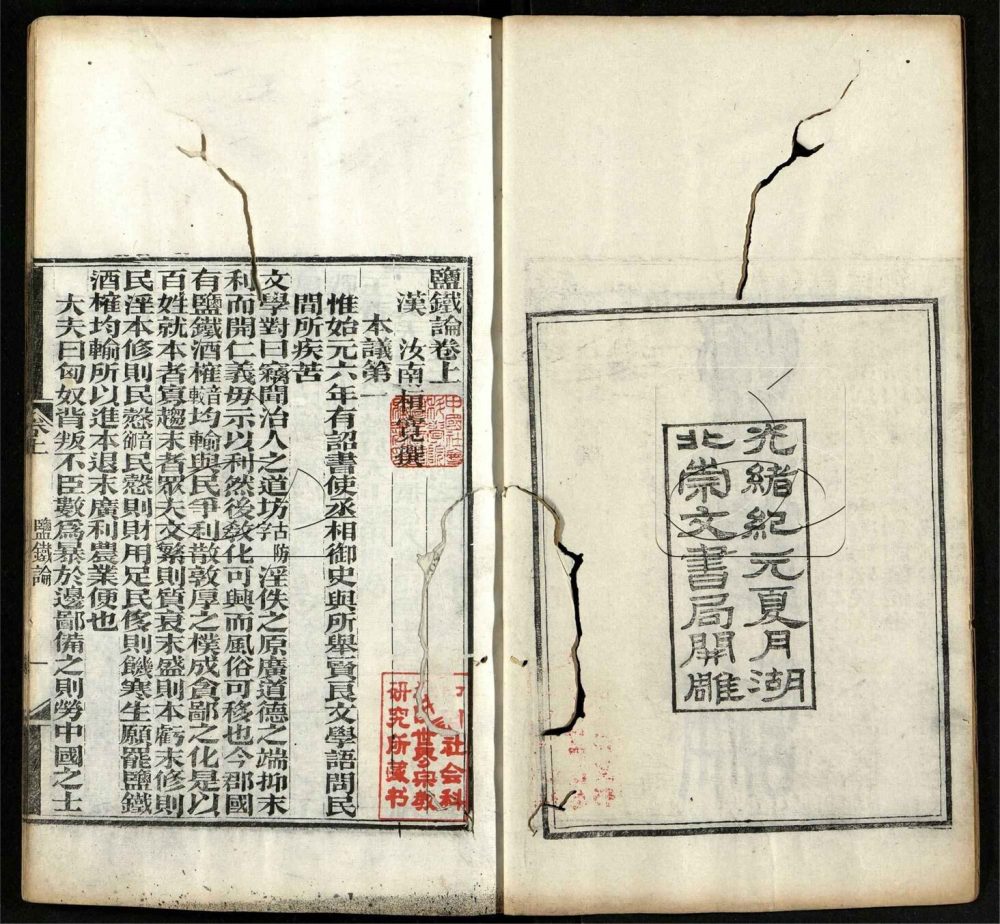 光緒紀元夏月湖
北崇文書局開雕
鹽鐵論卷上
漢 汝南桓寬撰
本議第一
惟始元六年有詔書使丞相御史與所舉賢良文學語問民
間所疾苦
文學對曰竊聞治人之道坊古防字淫佚之原廣道德之端抑末
利而開仁義毋示以利然後敎化可興而風俗可移也今郡國
有鹽鐵酒榷音較均輸與民爭利散敦厚之樸成貪鄙之化是以
百姓就本者寡趨末者眾夫文繁則質衰末盛則本虧末修則
民淫本修則民愨民愨則財用足民侈則饑寒生願罷鹽鐵
酒榷均輸所以進本退末廣利農業便也
大夫曰匈奴背叛不臣數爲暴於邊鄙備之則勞中國之士
卷上
鹽鐵論
一
社会科
世界宗教
研究所藏书